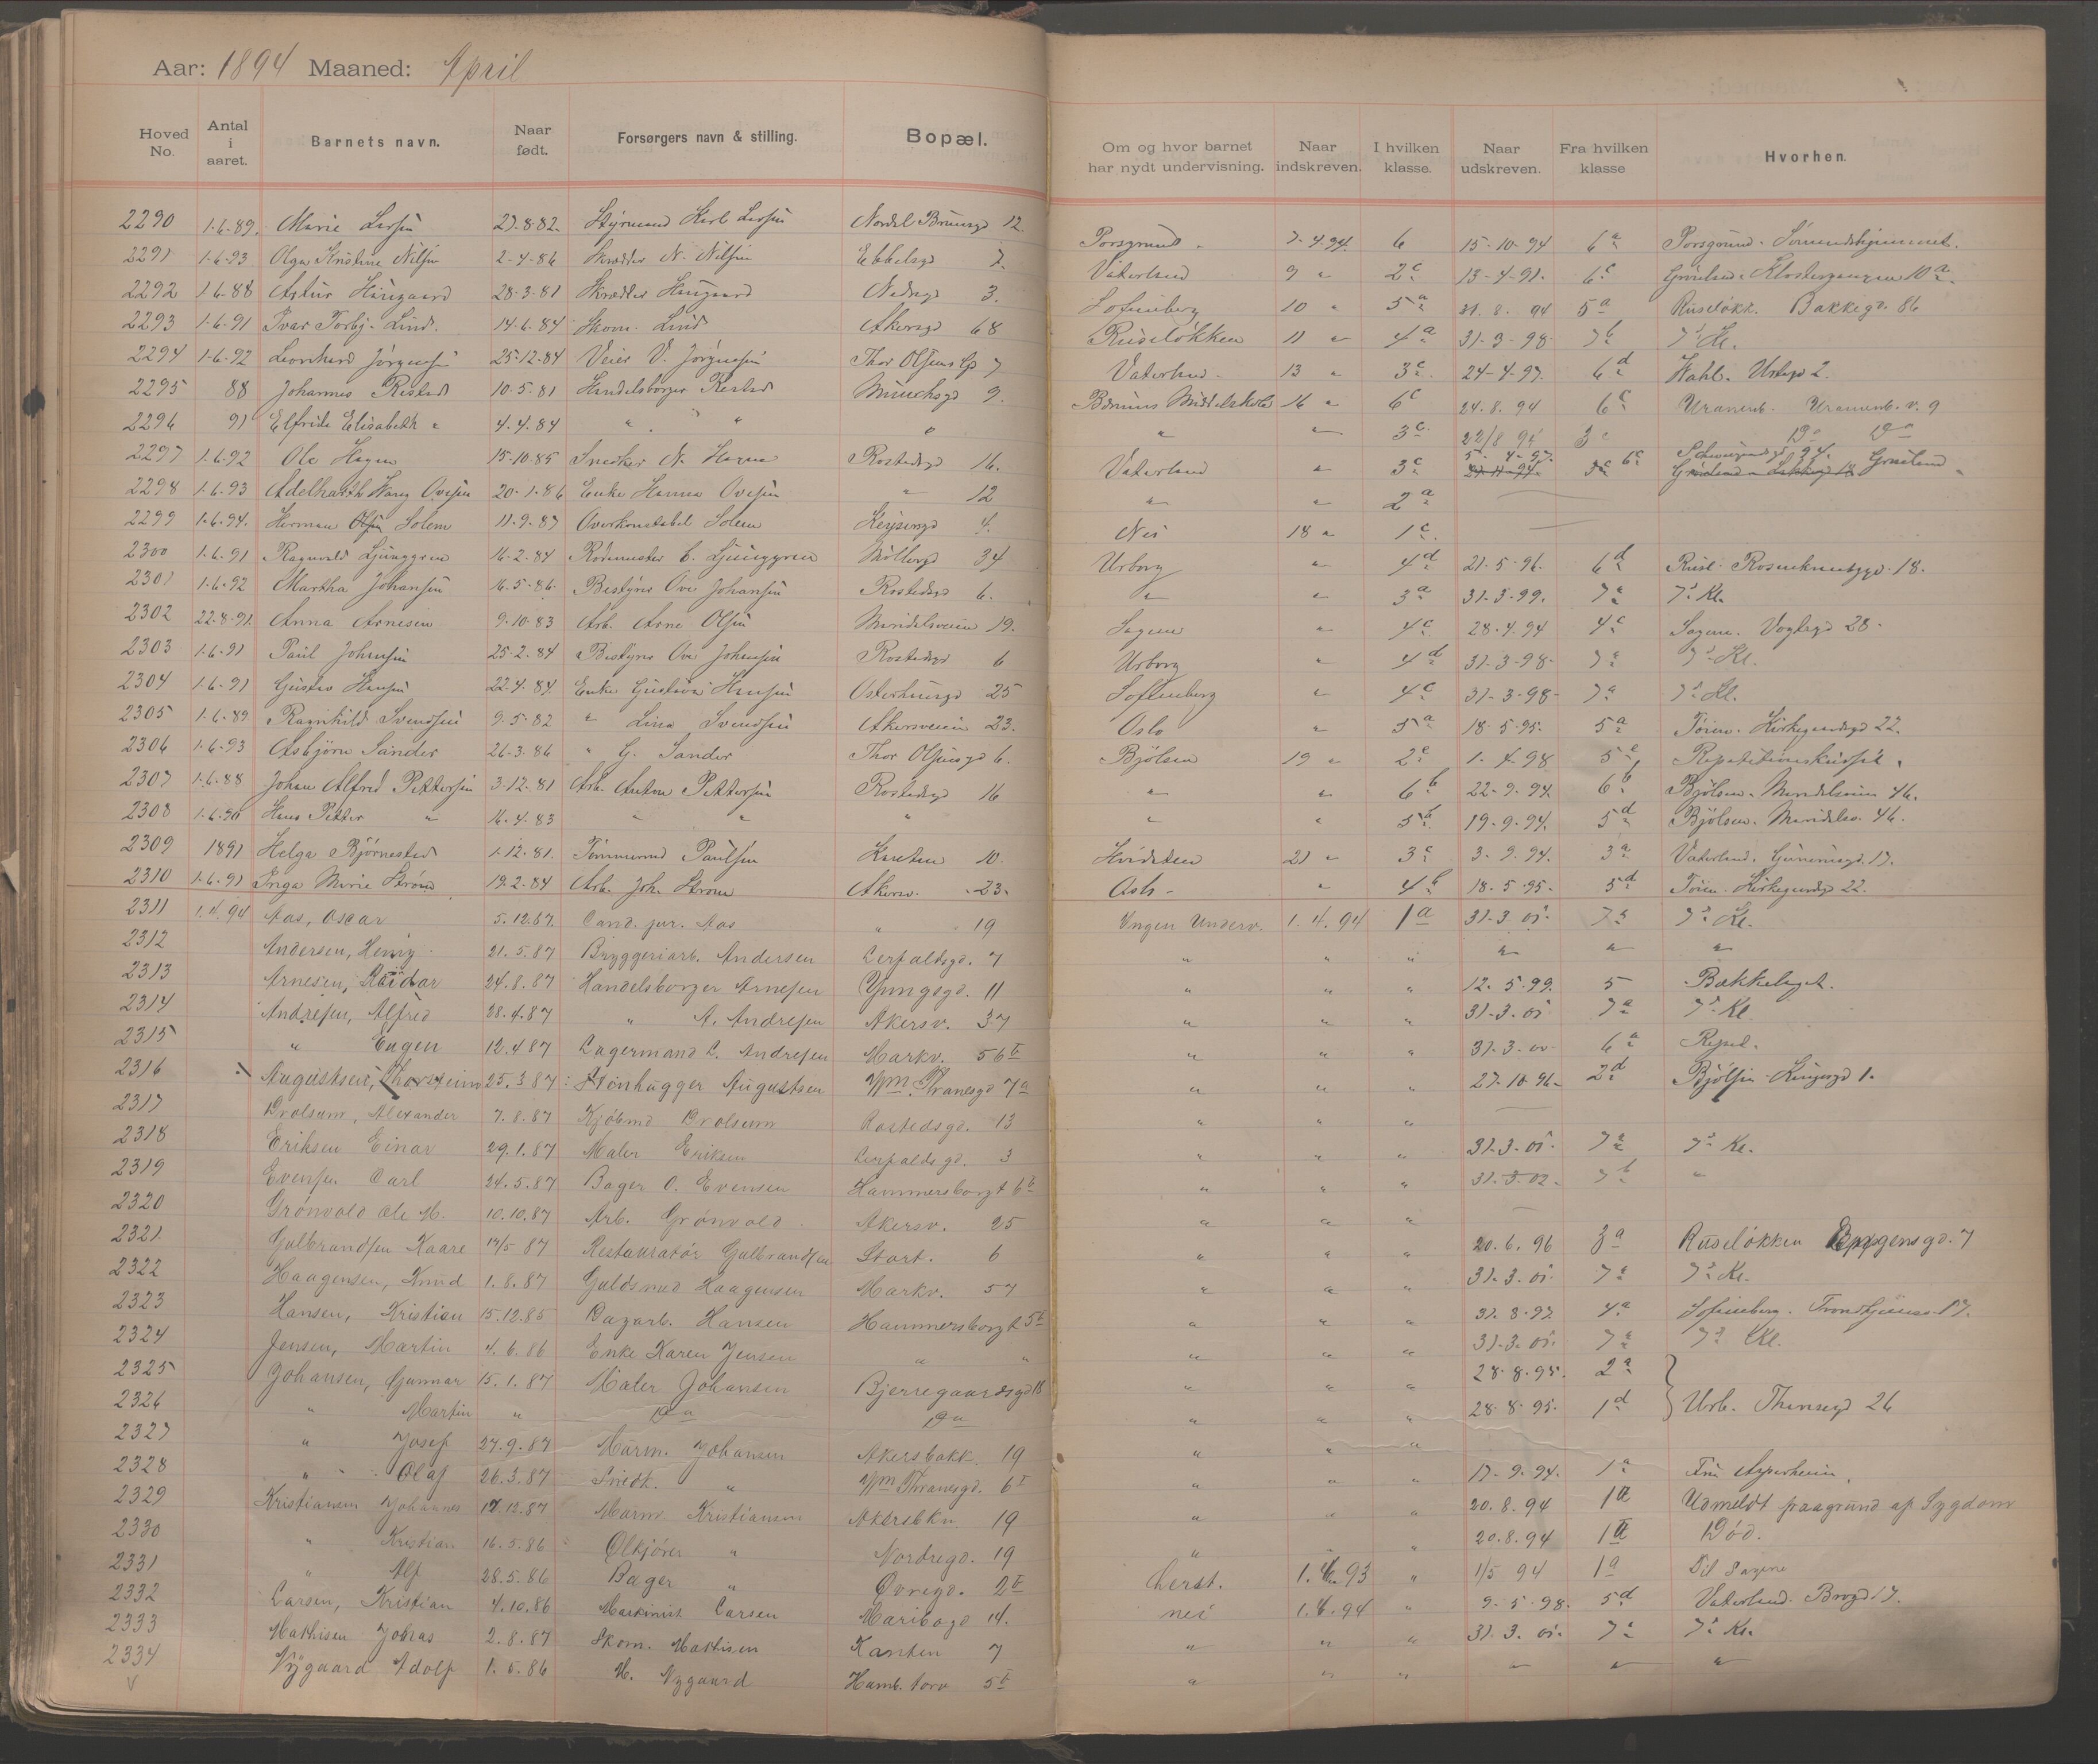 Aar: 1894 Maaned: April
Hoved No. Antal i aaret. Barnets navn. Naar født. Forsørgers navn & stilling. Bopæl. Om og hvor barnet har nydt undervisning. Naar indskreven. I hvilken klasse. Naar udskreven. Fra hvilken klasse Hvorhen.
2290 1.6.89. Marie Larsen 27.8.82. Styrmand Karl Larsen 12. Porsgrund 7.4.94. 6 15-10-94 6a Porsgrund.
2291 1-6-93 Olga Kristine Nilsen 2-4-86 Skrædder N. Nilsen Ebbelsgd 7. Vaterland 9 " 2c 13-4-91. 6c 10a.
2292 1-6-88 Artur Haugaard 28-3-81 Skrædder Haugaard Nedregd 3. Sofienberg 10 " 5a 31.8.94 5a Ruseløkk. Bakkegd. 86
2293 1-6-91 Ivar Torbj. Lind. 14-6-84 Skom. Lind Akersgd 68 Ruseløkken 11 " 4a 31-3-98 7b 7d Kl.
2294 1-6-92 Leonhard Jørgensen 25-12-84 Veier V. Jørgensen Thor Olsens Gd 7 Vaterland 13 " 3c 24-4-97. 6d Wahl. Urtegd 2.
2295 88 Johannes Restad 10-5-81 Handelsborger Restad Munchsgd 9. Bærums Middelskole 16 " 6c 24.8.94 6c Uranienb. Uranienb. v. 9
2296 91 Elfride Elisabeth " 4.4.84 " " " " " 3c 22/8 94 3c Do Do
2297 1.6.92 Ole Hagen 15-10-85 Snedker N. Hagen Rostedsgd 16. Vaterland " 3c 5-4-97. 6c 24. Grønland
2298 1-6-93 Ovesen 20-1-86 Enke Hanna Ovesen " 12 " " 2a
2299 1-6-94. Herman Olsen Solem 11-9-87 Overkonstabel Solem Keysersgd 4. Nei 18 " 1c.
2300 1-6-91 Ragnvald Ljunggren 16-2-84 Rodemester C. Ljunggren Møllergd 34 Urborg " 4d 21-5-96. 6d Rusel. Rosenkrantzgd. 18.
2301 1-6-92 Martha Johansen 16-5-86 Bestyrer Ove Johansen Rostedsgd 6. " " 3a 31-3-99. 7a 7d Kl.
2302 22-8-91 Anna Arnesen 9-10-83 Arb. Arne Olsen Maridalsveien 19. Sagene " 4c 28-4-94 4c Sagene. Vogtsgd 28.
2303 1-6-91 Paul Johansen 25-2-84 Bestyrer Ove Johansen Rostedsgd 6 Urborg " 4d 31-3-98 7a 7d Kl.
2304 1-6-91 Gustav Hansen 22-4-84. Enke Gustava Hansen Osterhausgd 25 Sofienberg " 4c 31-3-98 7a 7d Kl.
2305 1-6-89 Ragnhild Svendsen 9-5-82 " Lina Svendsen Akersveien 23. Oslo " 5a 18-5-95. 5a Tøien. Kirkegaardsgd 22.
2306 1-6-93 Asbjørn Sander 26-3-86 " G. Sander Thor Olsensgd 6. Bjølsen 19 " 2c 1-4-98 5c
2307 1-6-88 Johan Alfred Pettersen 3-12-81 Arb. Anton Pettersen Rostedsgd 16 " " 6b 22-9-94. 6b Bjølsen. Maridalsveien 46.
2308 1-6-90 Hans Petter " 16-4-83 " " " " " 5b. 19-9-94. 5d Bjølsen. Maridalsv. 46.
2309 1891 Helga Bjørnestad 1-12-81. Tømmermd Paulsen Kanten 10. Hvidsten 21 " 3c 3-9-94. 3a Vaterland. 17.
2310 1-6-91 Inga Marie Strøm 19-2-84 Arb. Joh. Strøm Akersv. 23. Oslo " 4b 18-5-95. 5d Tøien. Kirkegaardsgd 22.
2311 1.4.94 Aas, Oscar 5.12.87. Cand. jur. Aas " 19 Ingen Underv. 1.4.94 1a 31.3.01. 7a 7d Kl.
2312 Andersen, Henry 21.5.87 Bryggeriarb. Andersen Lerfaldsgd. 7 " " " " " "
2313 Arnesen, Reidar 24.8.87 Handelsborger Arnesen Youngsgd. 11 " " " 12.5.99. 5 Bækkelaget.
2314 Andresen, Alfred 28.4.87 " A. Andresen Akersv. 37 " " " 31-3-01 7a 7d Kl
2315 " Eugen 12.4.87 Lagermand L. Andresen Markv. 56II " " " 31-3-00 6a Repet.
2316 Augustsen, Thorstein 25.3.87 Stenhugger Augustsen Wm Thranesgd 7a " " " 27-10-96 2d Bjølsen 1.
2317 Drolsum, Alexander 7.8.87 Kjøbmd Drolsum Rostedsgd. 13 " "
2318 Eriksen Einar 29.1.87 Maler Eriksen Lerfaldsgd. 3 " " " 31-3-01. 7a 7d Kl.
2319 Evensen Carl 24.5.87 Bager O. Evensen Hammersborgt 6b " " " 31-3-02. 7b "
2320 Grønvold Ole M. 10.10.87 Arb. Grønvold Akersv. 25 " " "
2321 Gulbrandsen Kaare 17/5 87 Restauratør Gulbrandsen Stort. 6 " " " 20.6.96 3a Ruseløkken 7
2322 Haagensen, Knud 1.8.87 Guldsmed Haagensen Markv. 57 " " " 31.3.01. 7a 7d Kl.
2323 Hansen, Kristian 15.12.85 Dagarb. Hansen Hammersborgt 5b " " " 31.8.97. 4a Sofienberg. 17.
2324 Jensen, Martin 4.6.86 Enke Karen Jensen " " " " " 31.3.01. 7a 7d Kl.
2325 Johansen, Gunnar 15.1.87 Maler Johansen Bjerregaardsgd 18 " " " 28-8-95. 2a
2326 " Martin " Do Do " " " 28-8-95. 1d Urb. 26
2327 " Josef 27.9.87 Murm. Johansen Akersbakk. 19 " " "
2328 " Olaf 26.3.87 Snedk. " Wm Thranesgd. 6I " " " 17-9-94. 1a
2329 Kristiansen Johannes 17.12.87 Murm. Kristiansen Akersbkn. 19 " " " 20.8.94 1a Udmeldt paagrund af Sygdom
2330 " Kristian 16.5.86 Ølkjører " Nordregd. 19 " " " 20.8.94 1a Død.
2331 " Alf 28.5.86 Bager " Øvregd. 2b 1.6.93 " 1/5 94 1a Til Sagene
2332 Larsen, Kristian 4.10.86 Maskinist Larsen Maribogd 14. nei 1.4.94 " 9-5-98. 5d Vaterland. Brogd 17.
2333 Mathisen Jonas 2.8.87 Skom. Mathisen Kanten 7 " " " 31.3.01. 7a 7d Kl.
2334 Nygaard Adolf 1.5.86 H. Nygaard Hamb. torv 5b " " " " " "